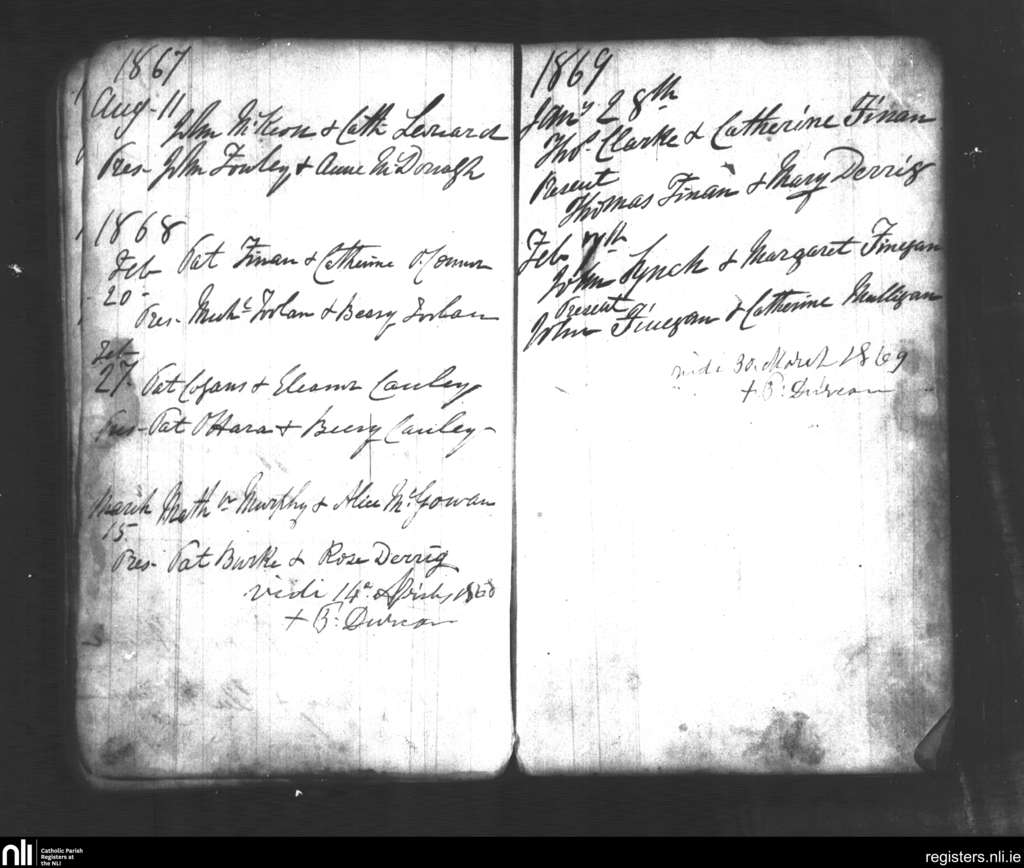 1867
Aug- 11
John McKeon & Cath Leonard
Pres- John Fowley & Anne McDonagh
1868
Feb Pat Finan & Catherine O'Connor
20-
Pres- Michl Nolan &
Feb
27. Pat Cogans & Eleanor Cauley
Pres- Pat O'Hara & Cauley-
March Mathw Murphy & Alice McGowan
15.
Pres- Pat Burke & Rose Derrig
vidi 14a Aprilis, 1868
+ P: Durcan
1869
Jany 28th
Thos. Clarke & Catherine Finan
Present
Thomas Finan & Mary Derrig
Feb
John Lynch & Margaret Finegan
Present
John Finegan & Catherine Mulligan
vidi 30. March 1869
+ P: Durcan
nli
Catholic Parish
Registers at
the NLI
registers.nli.ie